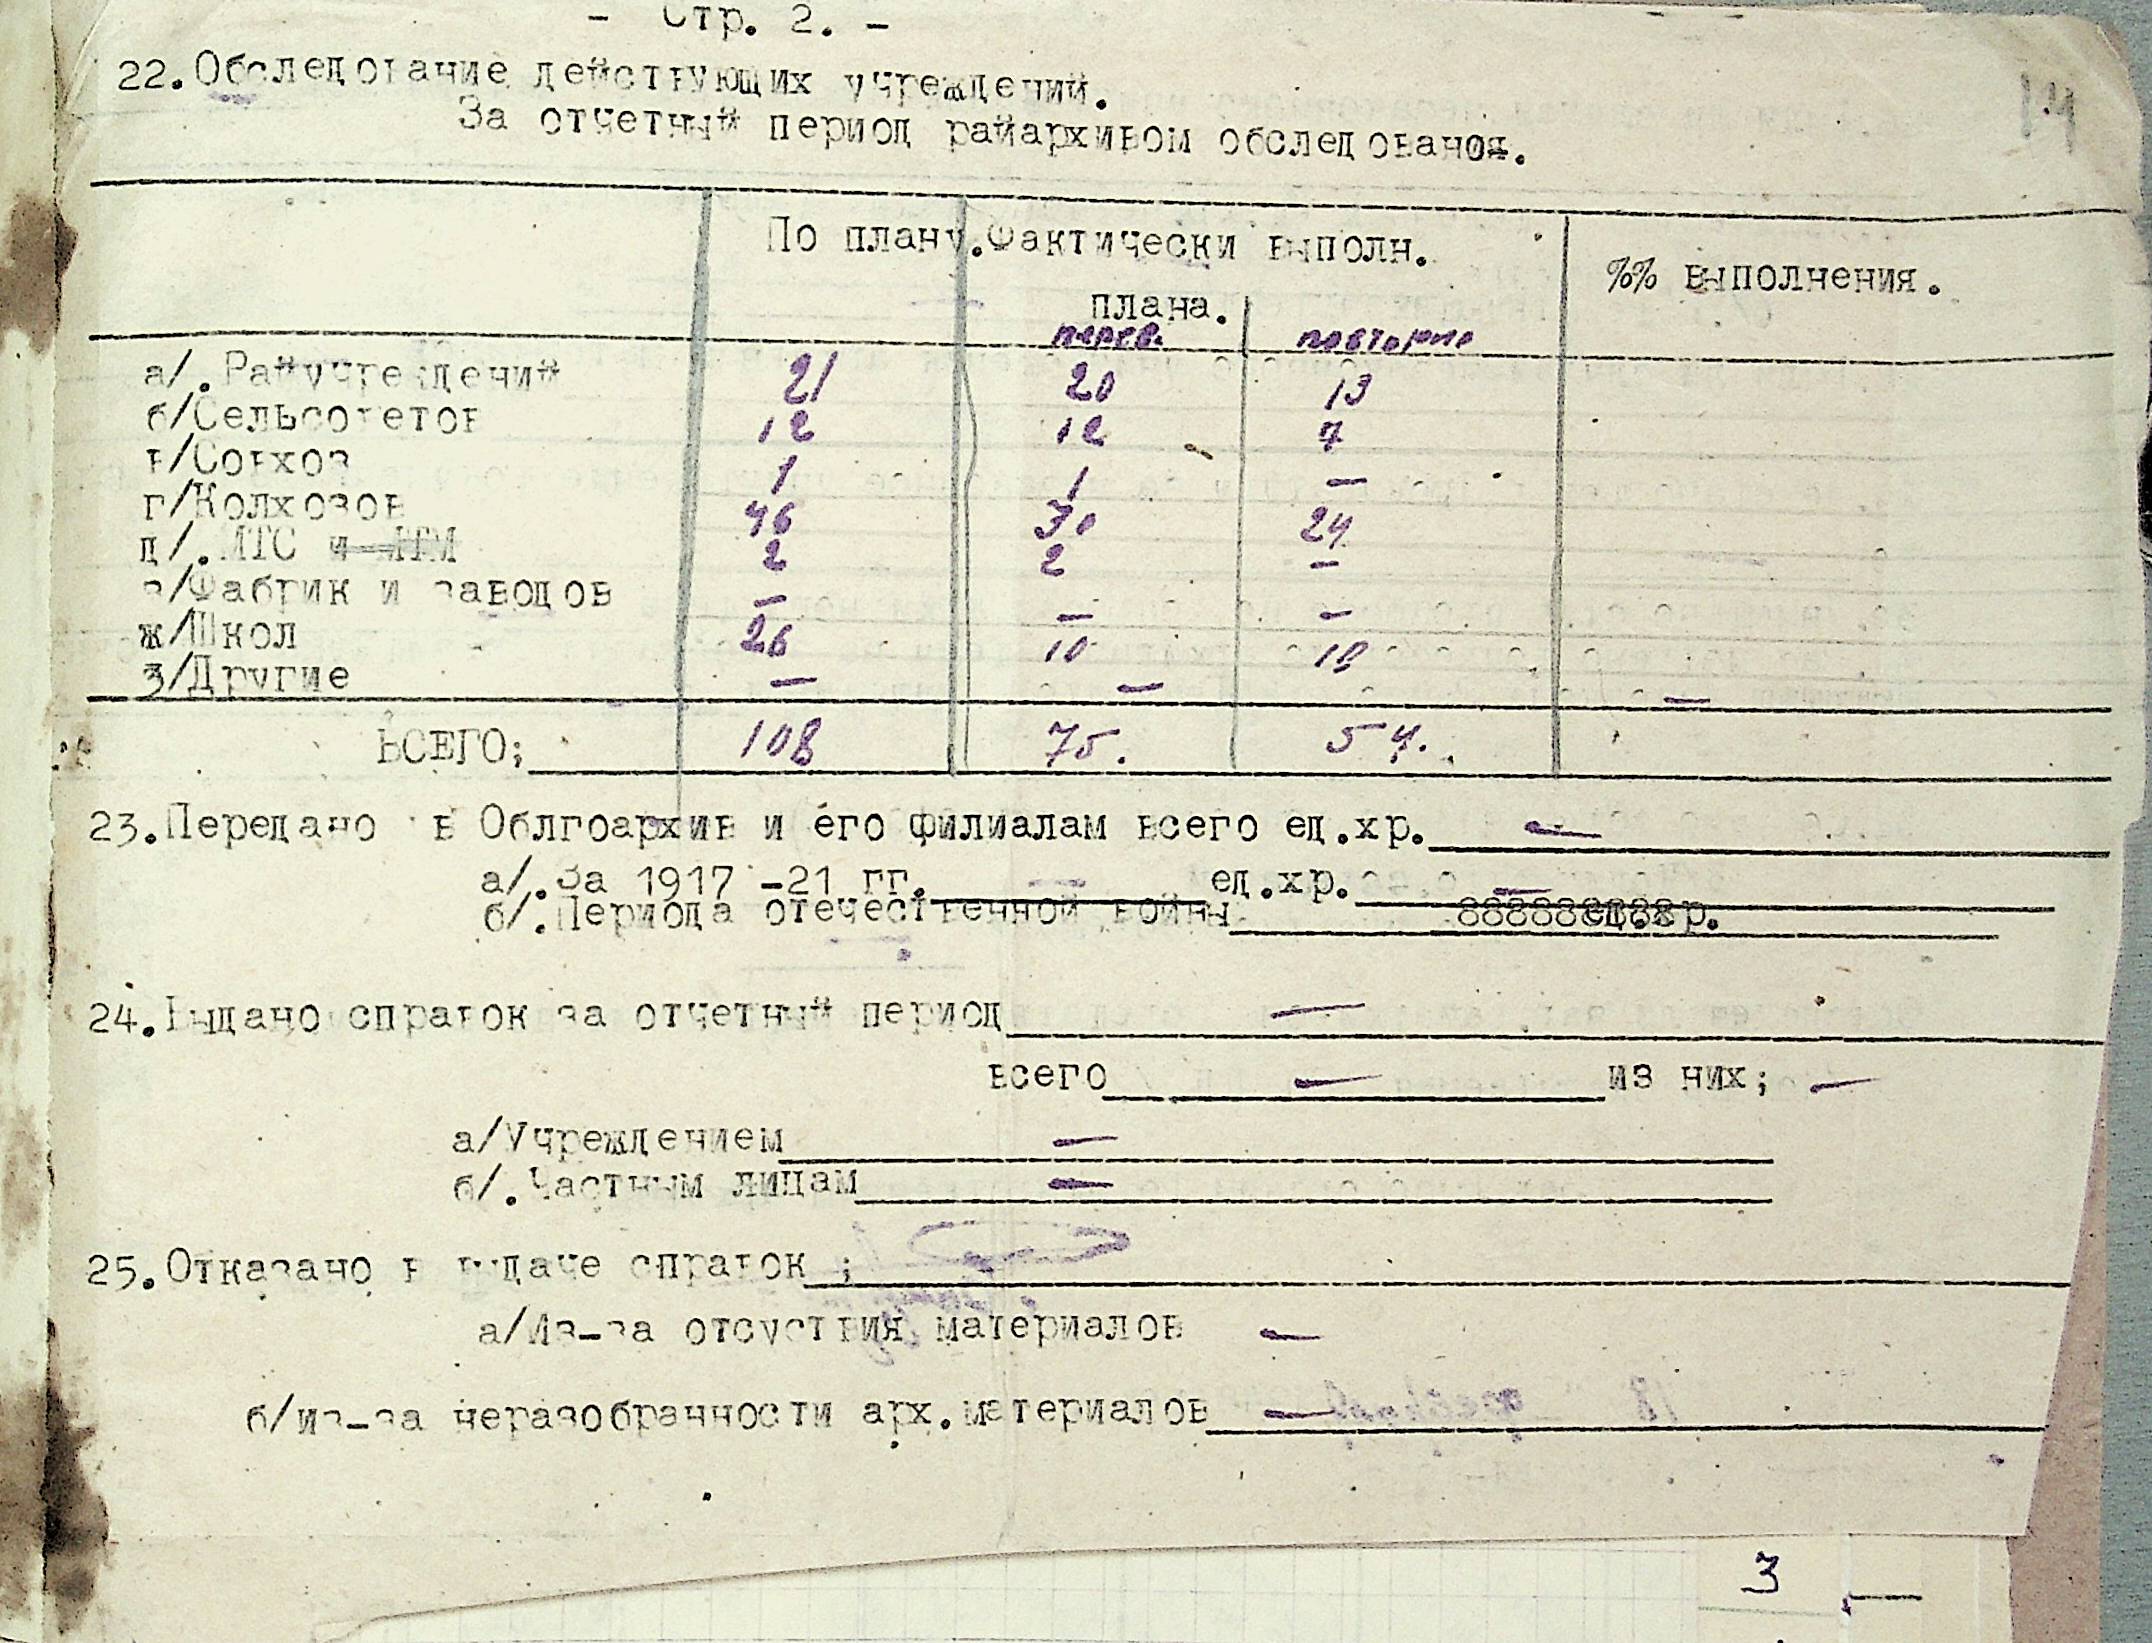 - Стр. 2. -
14
22.Обследование действующих учреждений.
За отчетный период райархивом обследовано.
По плану. Фактически выполн. плана. %% выполнения.
перв. повторно
а/.Райучреждений 21 20 13
б/Сельсоветов 12 12 7
в/Совхоз 1 1 —
г/Колхозов 46 30 24
д/.МТС и МТМ 2 2 —
е/Фабрик и заводов — — —
ж/Школ 26 10 10
з/Другие — — —
ВСЕГО; 108 75. 54.
23.Передано в Облгоархив и его филиалам всего ед.хр. —
а/.За 1917 -21 гг. ед.хр. —
б/.Периода отечественной войны ед.хр.
24.Выдано справок за отчетный период —
всего — из них; —
а/Учреждением —
б/.Частным лицам —
25.Отказано в выдаче справок ;
а/Из-за отсуствия материалов —
б/из-за неразобранности арх.материалов —
3 —